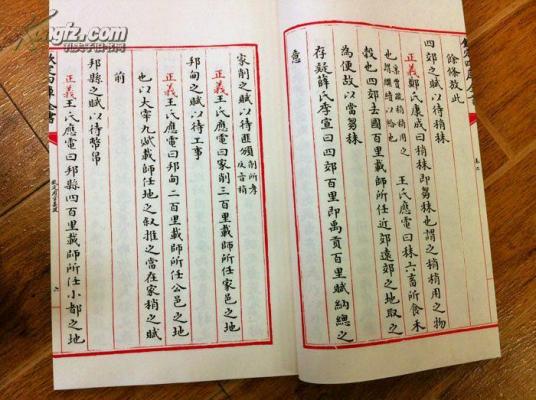 餘條放此
四郊之賦以待稍秣
正義鄭氏康成曰稍秣即芻秣也謂之稍稍用之物
案賈疏稍稍用之
謂繼續以給也
王氏應電曰秣六畜所食禾
穀也四郊去國百里載師所任近郊遠郊之地取之
為便故以當芻秣
存疑薛氏季宣曰四郊百里即禹貢百里賦納總之
意
家削之賦以待匪頒
削所孝
反音稍
正義王氏應電曰家削三百里載師所任家邑之地
邦甸之賦以待工事
正義王氏應電曰邦甸二百里載師所任公邑之地
也以大宰九賦載師任地之叙推之當在家稍之賦
前
邦縣之賦以待幣帛
正義王氏應電曰邦縣四百里載師所任小都之地